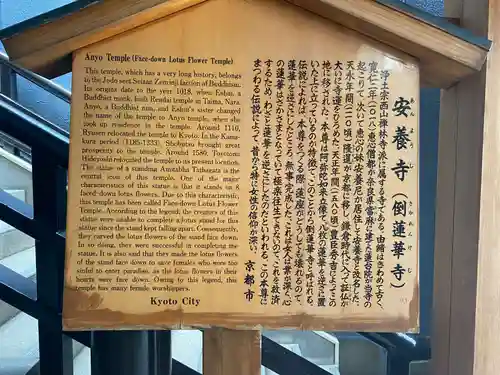 Anyo Temple (Face-down Lotus Flower Temple)
This temple, which has a very long history, belongs
to the Jodo sect Seizan Zenrinji faction of Buddhism.
Its origins date to the year 1018, when Eshin, a
Buddhist monk, built Rendai temple in Taima, Nara.
Anyo, a Buddhist nun, and Eshin's sister changed
the name of the temple to Anyo temple, when she
took up residence in the temple. Around 1110,
Ryusen relocated the temple to Kyoto. In the Kama-
kura period (1185-1333), Shobutsu brought great
prosperity to the temple. Around 1580, Toyotomi
Hideyoshi relocated the temple to its present location.
The statue of a standing Amitabha Tathagata is the
central icon of the temple. One of the major
characteristics of this statue is that it stands on 8
faced down lotus flowers. Due to this characteristic,
this temple has been called Face-down Lotus Flower
Temple. According to the legend, the creators of this
statue were unable to complete a lotus stand for this
statue since the stand kept falling apart. Consequently,
they carved the lotus flowers of the stand face down.
In so doing, they were successful in completing the
statue. It is also said that they made the lotus flowers
of the stand face down to save females who were too
sinful to enter paradise, as the lotus flowers in their
hearts were face down. Owing to this legend, this
temple has many female worshippers.
Kyoto City
安養寺(倒蓮華寺)
あんようじ さかれんげじ
浄土宗西山禅林寺派に属する寺である。由緒はきわめて古く、
寛仁二年(一〇一八)恵心僧都が奈良県當麻に建てた蓮台院が当寺の
起こりで、次いで恵心の妹安養尼が居住して安養寺と改名した。
天永年間(一一一〇頃)隆暹が京都に移し、鎌倉時代に入って証仏が
大いに寺運を高めた。天正年間(一五八〇頃)豊臣秀吉によってこの
地に移された。本尊阿弥陀如来立像で、八枚の蓮華を逆さに置
いた上に立っているのが特徴でこのことから倒蓮華寺と呼ばれる。
伝説によれば、本尊をつくる際、蓮座がどうしても壊れるので、
蓮華を逆さにしたところ、無事完成した。これは女人は業が深く心
の蓮華が逆さになっていて極楽往生できないので、これを救済
するためにわざと蓮華を逆さにしたのだといわれる。この本尊に
まつわる伝説によって、昔から特に女性の信仰が深い。
京都市